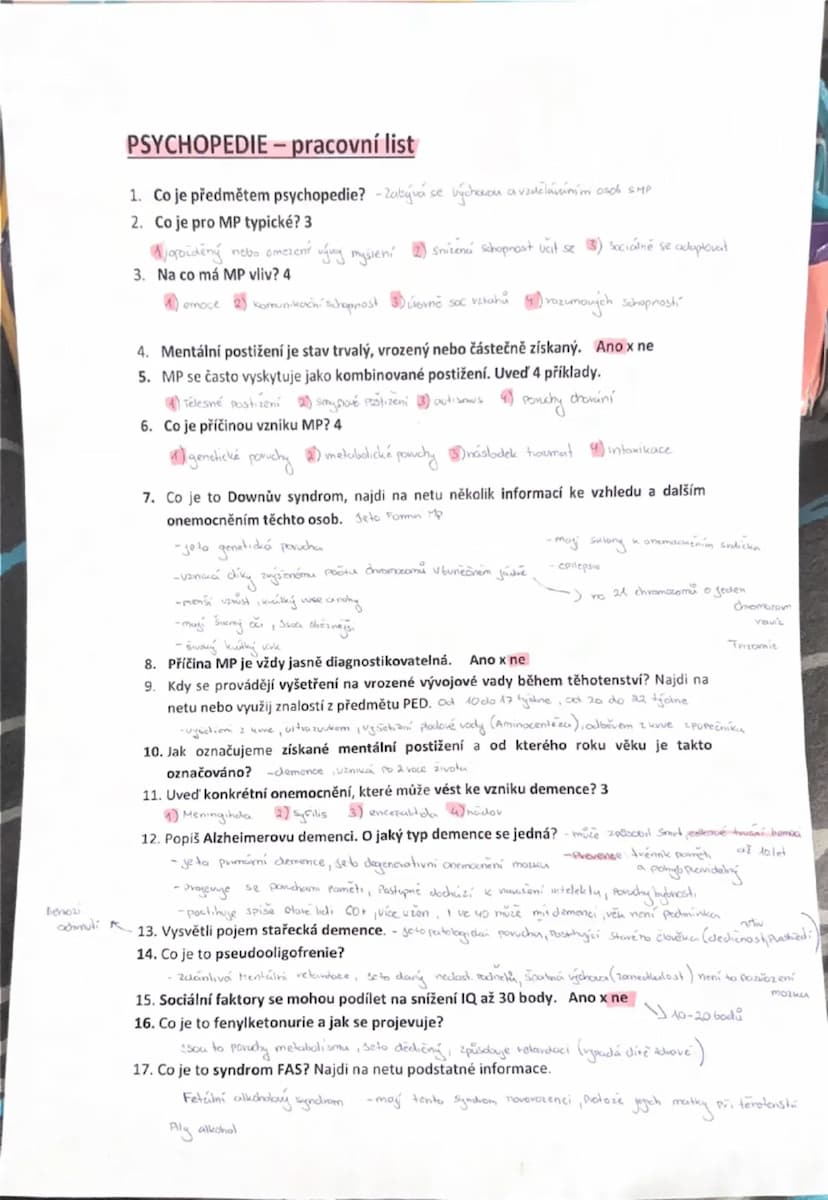 PSYCHOPEDIE – pracovní list
1. Co je předmětem psychopedie? - zabývá se výchovou a vzděláváním osob s MP
2. Co je pro MP typické? 3
1) opožděný nebo omezení vývoj myšlení 2) snížená schopnost učit se 3) sociálně se adaptovat
3. Na co má MP vliv? 4
1) emoce 2) komunikační schopnost 3) úroveň soc vztahů 4) rozumových schopností
4. Mentální postižení je stav trvalý, vrozený nebo částečně získaný. Ano x ne
5. MP se často vyskytuje jako kombinované postižení. Uveď 4 příklady.
1) Tělesné postižení 2) smyslové postižení 3) autismus 4) poruchy chování
6. Co je příčinou vzniku MP? 4
1) genetické poruchy 2) metabolické poruchy 3) následek traumat 4) intoxikace
7. Co je to Downův syndrom, najdi na netu několik informací ke vzhledu a dalším
onemocněním těchto osob. Je to forma MP
- je to genetická porucha
- mají sklony k onemocněním srdíčka
- vzniká díky zvýšenému počtu chromozomů v buněčném jádře
- epilepsie
-> na 21 chromozomů o jeden
chromozom
navíc
Trizomie
- menší vzrůst, krátký ruce a nohy
- mají šikmý oči, jsou obéznější
- široký krátký krk
8. Příčina MP je vždy jasně diagnostikovatelná. Ano x ne
9. Kdy se provádějí vyšetření na vrozené vývojové vady během těhotenství? Najdi na
netu nebo využij znalostí z předmětu PED. Od 10 do 17 týdne, od 20 do 22 týdne
- vyšetření z krve, ultrazvukem, vyšetření plodové vody (Aminocentéza), odběrem z krve z pupečníku
10. Jak označujeme získané mentální postižení a od kterého roku věku je takto
označováno? - demence, vzniká po 2 roce života
11. Uveď konkrétní onemocnění, které může vést ke vzniku demence? 3
1) Meningitida 2) Syfilis 3) encefalitida 4) nádor
12. Popiš Alzheimerovu demenci. O jaký typ demence se jedná? - může způsobit smrt,
až 10 let
- Prevence trénink paměti,
a pohyb pravidelný
- je to primární demence, je to degenerativní onemocnění mozku
- Projevuje se poruchami paměti, Postupně dochází k narušení intelektu, poruchy hybnosti
- postihuje spíše staré lidi 60+, více u žen, 1 ze 40 může mít demenci, věk není podmínka
13. Vysvětli pojem stařecká demence. - Je to patologická porucha, postihující starého člověka (dědičnost, prostředí)
vliv
14. Co je to pseudooligofrenie?
- zdánlivá Mentální retardace, je to daný nedost. podnětů, špatná výchova (zanedbalost) není to poškození
mozku
15. Sociální faktory se mohou podílet na snížení IQ až 30 body. Ano x ne
-> 10-20 bodů
16. Co je to fenylketonurie a jak se projevuje?
Jsou to poruchy metabolismu, je to dědičný, způsobuje retardaci (vypadá dítě zdravě)
17. Co je to syndrom FAS? Najdi na netu podstatné informace.
Fetální alkoholový syndrom - mají tento syndrom novorozenci, protože jejich matky při těhotenství
Pily alkohol